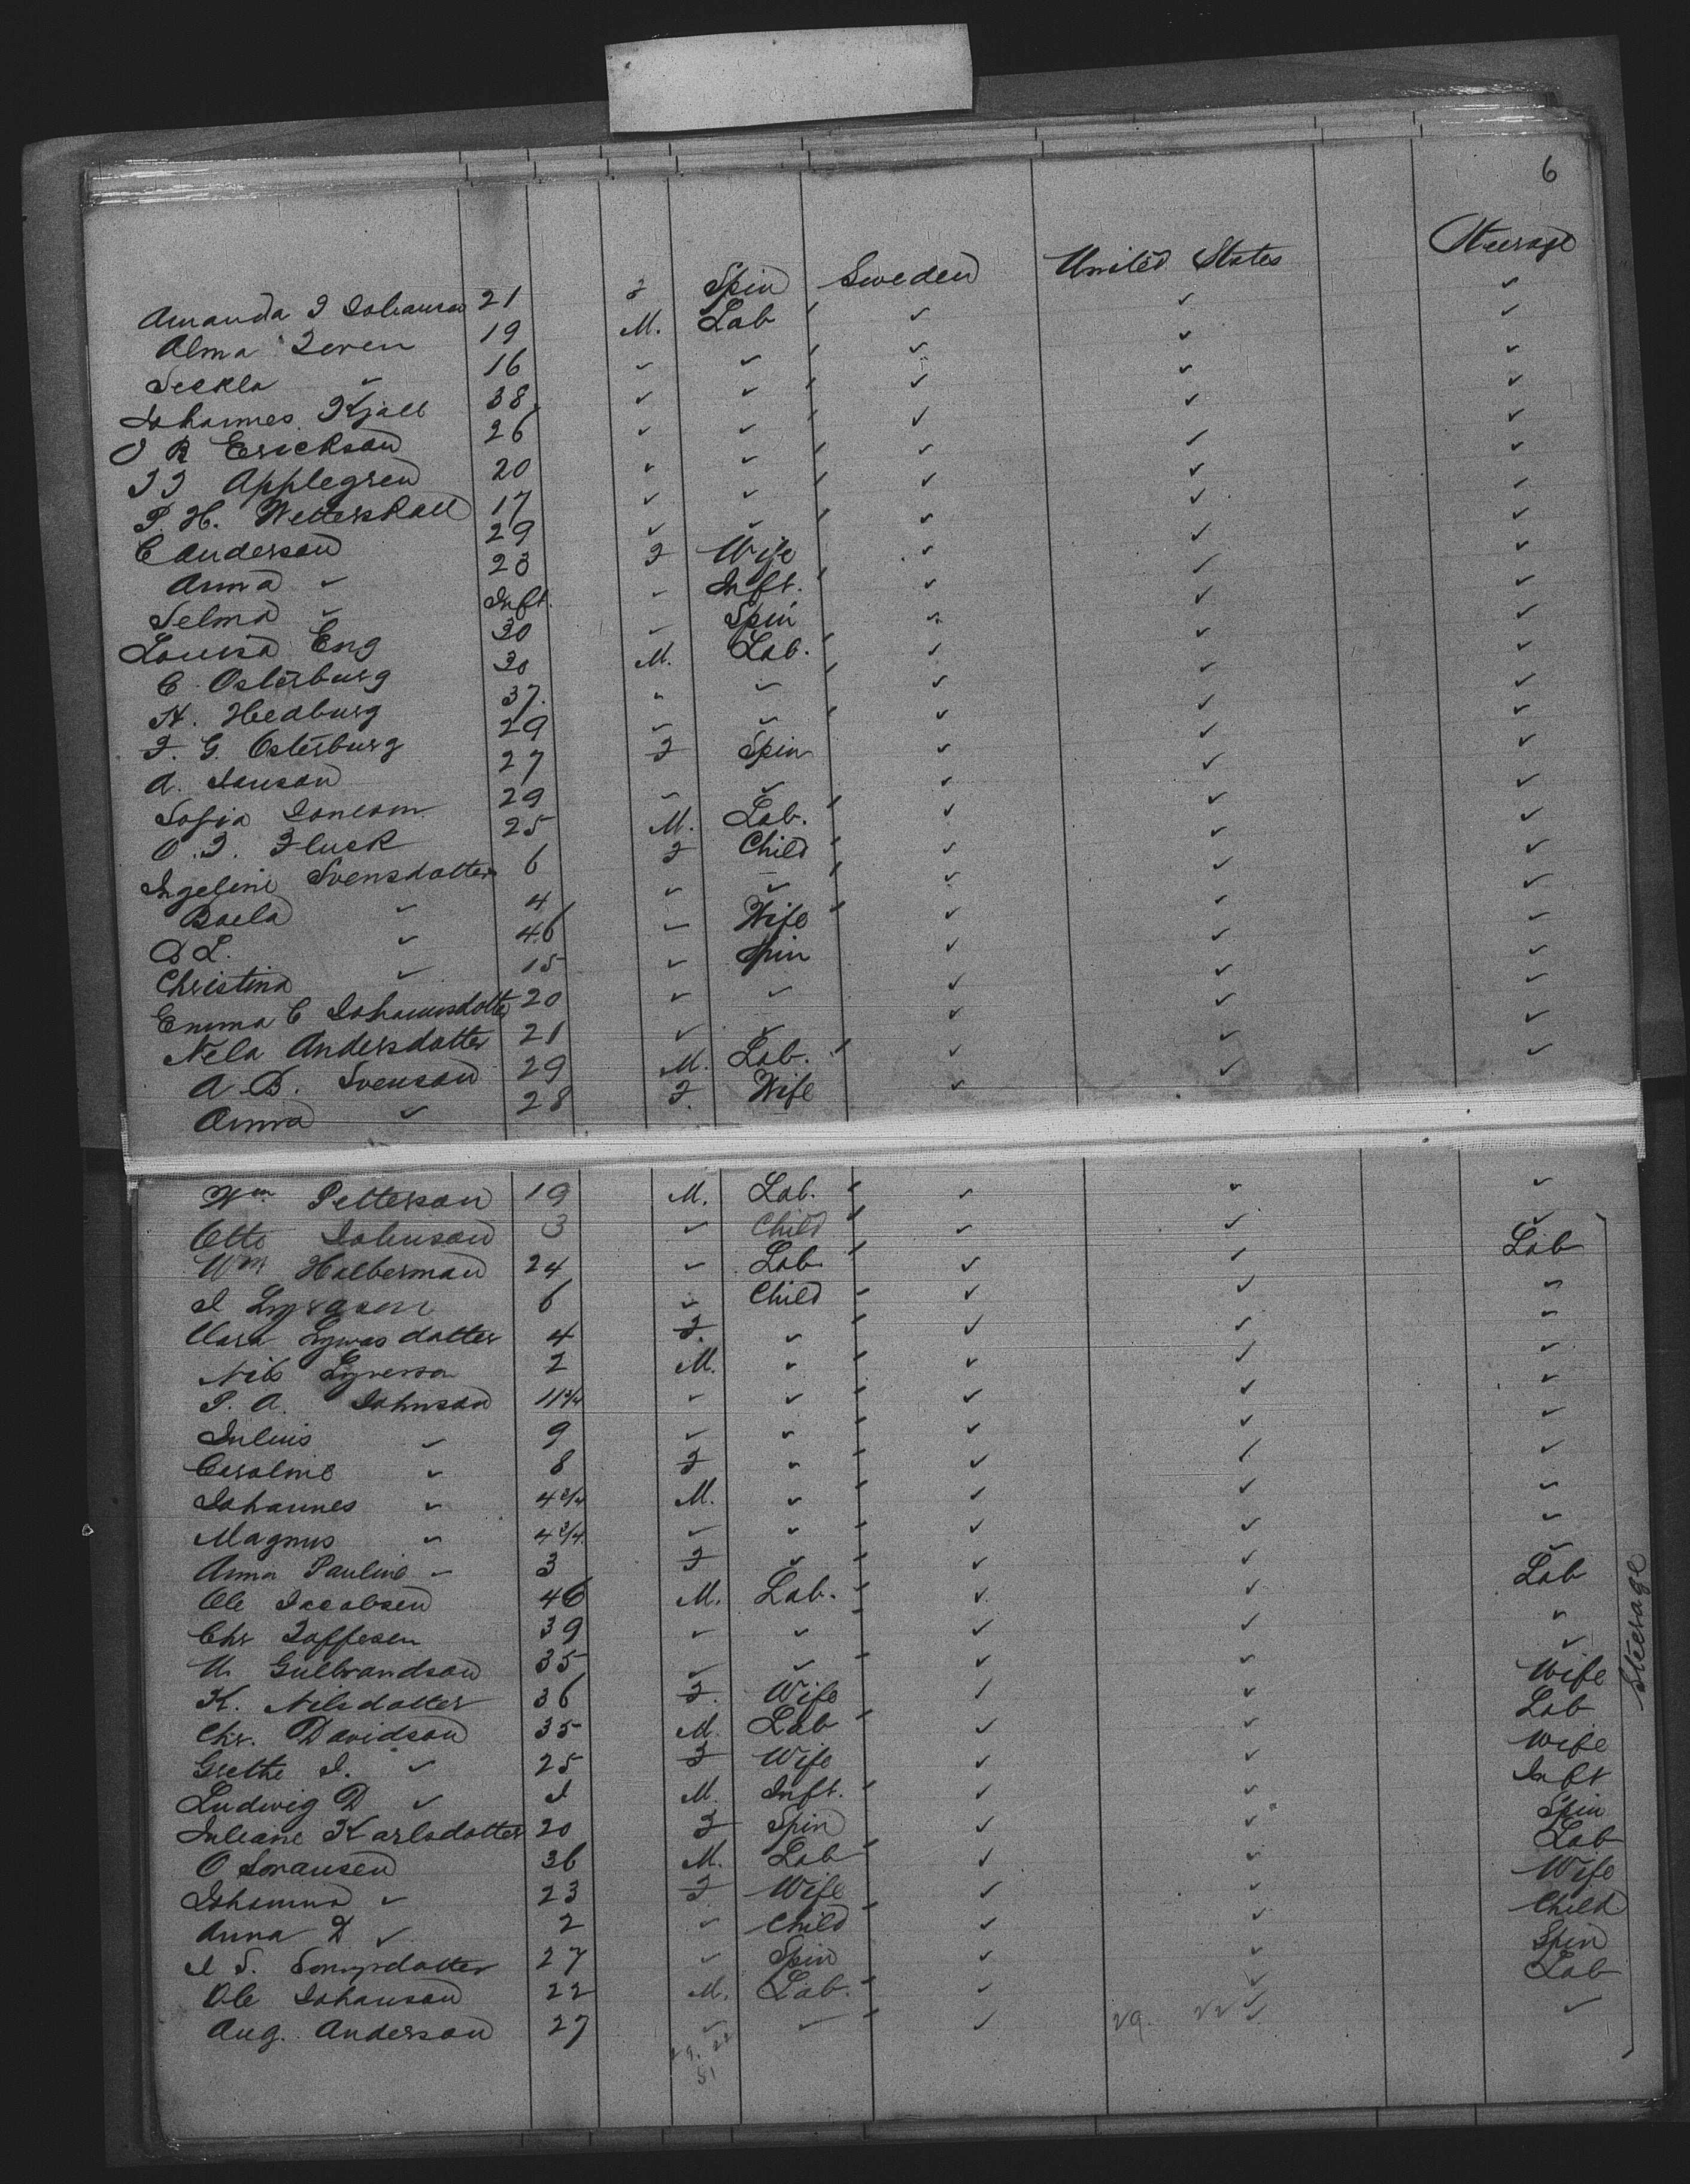 6
Amanda J Johanson 21 F Spin Sweden United States Steerage
Alma Feren 19 M. Lab ✓ ✓ ✓
Seckla ✓ 16 ✓ ✓ ✓ ✓ ✓
Johannes Kjall 38 ✓ ✓ ✓ ✓ ✓
J R Erickson 26 ✓ ✓ ✓ ✓ ✓
J J Applegren 20 ✓ ✓ ✓ ✓ ✓
P. H. Wetterskall 17 ✓ ✓ ✓ ✓ ✓
C Anderson 29 ✓ ✓ ✓ ✓ ✓
Anna ✓ 23 F Wife ✓ ✓ ✓
Selma ✓ Inft. ✓ Inft. ✓ ✓ ✓
Louisa Eng 30 ✓ Spin ✓ ✓ ✓
C Osterburg 30 M. Lab. ✓ ✓ ✓
H. Hedburg 37. ✓ ✓ ✓ ✓ ✓
F. G. Osterburg 29 ✓ ✓ ✓ ✓ ✓
A. Jonson 27 F Spin ✓ ✓ ✓
Sofia 29 ✓ ✓ ✓ ✓ ✓
O. F. Fluck 25 M. Lab. ✓ ✓ ✓
Ingeline Svensdotter 6 F Child ✓ ✓ ✓
Boela ✓ 4 ✓ ✓ ✓ ✓ ✓
B L. ✓ 46 ✓ Wife ✓ ✓ ✓
Christina ✓ 15 ✓ Spin ✓ ✓ ✓
Emma C Johannsdotter 20 ✓ ✓ ✓ ✓ ✓
Nela Andersdotter 21 ✓ ✓ ✓ ✓ ✓
A. B. Svenson 29 M. Lab. ✓ ✓ ✓
Anna ✓ 28 F. Wife ✓ ✓ ✓
Wm Petterson 19 M. Lab. ✓ ✓ ✓
Otto Johnson 3 ✓ Child ✓ ✓ ✓
Wm Halberman 24 ✓ Lab. ✓ ✓ Lab
J 6 ✓ Child ✓ ✓ ✓
Clara dotter 4 F. ✓ ✓ ✓ ✓
Nils 2 M. ✓ ✓ ✓ ✓
P. A. Johnson 11 3/4 ✓ ✓ ✓ ✓ ✓
Julius ✓ 9 ✓ ✓ ✓ ✓ ✓
Caroline ✓ 8 F ✓ ✓ ✓ ✓
Johannes ✓ 4 3/4 M. ✓ ✓ ✓ ✓
Magnus ✓ 4 3/4 ✓ ✓ ✓ ✓ ✓
Anna Pauline ✓ 3 F ✓ ✓ ✓ ✓
Ole Jacobsen 46 M. Lab. ✓ ✓ Lab
Chr Toffesen 39 ✓ ✓ ✓ ✓ ✓
U. Gulbrandson 35 ✓ ✓ ✓ ✓ ✓
K. Nilsdotter 36 F. Wife ✓ ✓ Wife
Chr. Davidson 35 M. Lab ✓ ✓ Lab
Grethe J. ✓ 25 F Wife ✓ ✓ Wife
Ludwig D ✓ 1 M. Inft. ✓ ✓ Inft
Juleane Karlsdotter 20 F Spin ✓ ✓ Spin
O 36 M. Lab ✓ ✓ Lab
Johanna ✓ 23 F Wife ✓ ✓ Wife
Anna D ✓ 2 ✓ Child ✓ ✓ Child
J S. 27 ✓ Spin ✓ ✓ Spin
Ole Johanson 22 M. Lab. ✓ ✓ Lab
Aug. Anderson 27 ✓ ✓ ✓ 29. 22 ✓ ✓
29. 22
51
Steerage